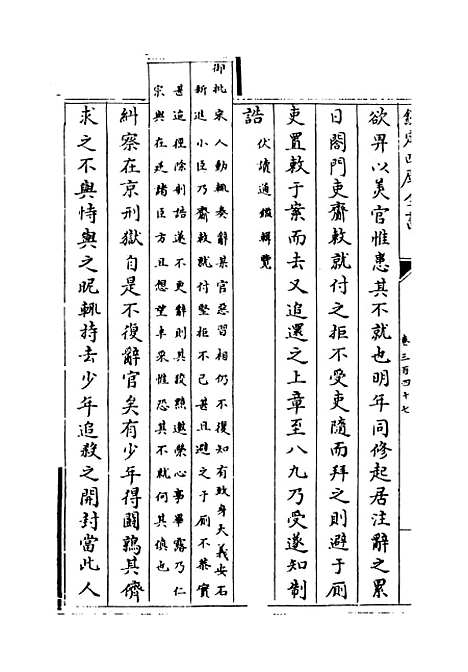 欽定四庫全書
卷三百四十七
欲畀以美官惟患其不就也明年同修起居注辭之累
日閤門吏齎敕就付之拒不受吏隨而拜之則避于厠
吏置敕于案而去又追還之上章至八九乃受遂知制
誥
伏讀通鑑輯覽
御批宋人動輒奏辭某官惡習相仍不復知有致身大義安石
新進小臣乃齎敕就付堅拒不已甚且避之于厠不恭實
甚迨徑除制誥遂不更辭則其狡黠邀榮心事畢露乃仁
宗與在廷諸臣方且想望丰采惟恐其不就何其慎也
糾察在京刑獄自是不復辭官矣有少年得鬬鶉其儕
求之不與恃與之昵輒持去少年追殺之開封當此人